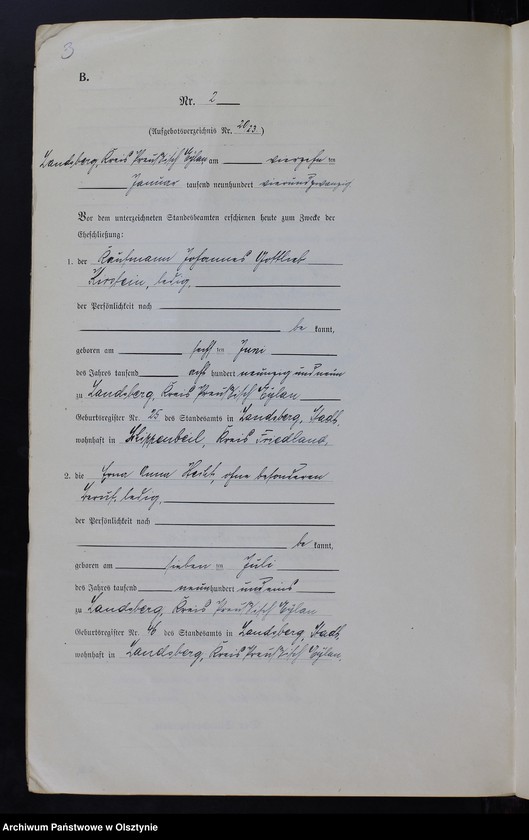 3
B.
Nr. 2
(Aufgebotsverzeichnis Nr. 20/23)
Landsberg, Kreis Preußisch Eylau am vierzehnten
Januar tausend neunhundert vierundzwanzig
Vor dem unterzeichneten Standesbeamten erschienen heute zum Zwecke der
Eheschließung:
1. der Kaufmann Johannes Gottlieb
Kerstein, ledig,
der Persönlichkeit nach
be kannt,
geboren am Juni
des Jahres tausend acht hundert neunzig und neun
zu Landsberg, Kreis Preußisch Eylau
Geburtsregister Nr. 25 des Standesamts in Landsberg, Stadt,
wohnhaft in Schippenbeil, Kreis Friedland,
2. die Erna Anna, ohne besonderen
Beruf, ledig,
der Persönlichkeit nach
be kannt,
geboren am sieben ten Juli
des Jahres tausend neunhundert und eins
zu Landsberg, Kreis Preußisch Eylau
Geburtsregister Nr. des Standesamts in Landsberg, Stadt,
wohnhaft in Landsberg, Kreis Preußisch Eylau,
Archiwum Państwowe w Olsztynie